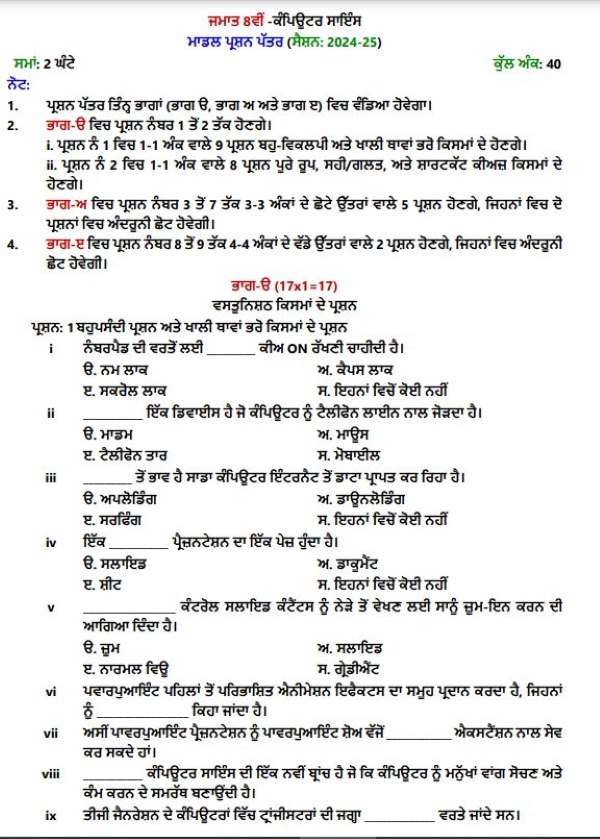 ਜਮਾਤ 8ਵੀਂ -ਕੰਪਿਊਟਰ ਸਾਇੰਸ
ਮਾਡਲ ਪ੍ਰਸ਼ਨ ਪੱਤਰ (ਸੈਸ਼ਨ: 2024-25)
ਸਮਾਂ: 2 ਘੰਟੇ ਕੁੱਲ ਅੰਕ: 40
ਨੋਟ:
1. ਪ੍ਰਸ਼ਨ ਪੱਤਰ ਤਿੰਨ੍ਹ ਭਾਗਾਂ (ਭਾਗ ੳ, ਭਾਗ ਅ ਅਤੇ ਭਾਗ ੲ) ਵਿਚ ਵੰਡਿਆ ਹੋਵੇਗਾ।
2. ਭਾਗ-ੳ ਵਿਚ ਪ੍ਰਸ਼ਨ ਨੰਬਰ 1 ਤੋਂ 2 ਤੱਕ ਹੋਣਗੇ।
i. ਪ੍ਰਸ਼ਨ ਨੰ 1 ਵਿਚ 1-1 ਅੰਕ ਵਾਲੇ 9 ਪ੍ਰਸ਼ਨ ਬਹੁ-ਵਿਕਲਪੀ ਅਤੇ ਖਾਲੀ ਥਾਵਾਂ ਭਰੋ ਕਿਸਮਾਂ ਦੇ ਹੋਣਗੇ।
ii. ਪ੍ਰਸ਼ਨ ਨੰ 2 ਵਿਚ 1-1 ਅੰਕ ਵਾਲੇ 8 ਪ੍ਰਸ਼ਨ ਪੂਰੇ ਰੂਪ, ਸਹੀ/ਗਲਤ, ਅਤੇ ਸ਼ਾਰਟਕੱਟ ਕੀਅਜ਼ ਕਿਸਮਾਂ ਦੇ
ਹੋਣਗੇ।
3. ਭਾਗ-ਅ ਵਿਚ ਪ੍ਰਸ਼ਨ ਨੰਬਰ 3 ਤੋਂ 7 ਤੱਕ 3-3 ਅੰਕਾਂ ਦੇ ਛੋਟੇ ਉੱਤਰਾਂ ਵਾਲੇ 5 ਪ੍ਰਸ਼ਨ ਹੋਣਗੇ, ਜਿਹਨਾਂ ਵਿਚ ਦੋ
ਪ੍ਰਸ਼ਨਾਂ ਵਿਚ ਅੰਦਰੂਨੀ ਛੋਟ ਹੋਵੇਗੀ।
4. ਭਾਗ-ੲ ਵਿਚ ਪ੍ਰਸ਼ਨ ਨੰਬਰ 8 ਤੋਂ 9 ਤੱਕ 4-4 ਅੰਕਾਂ ਦੇ ਵੱਡੇ ਉੱਤਰਾਂ ਵਾਲੇ 2 ਪ੍ਰਸ਼ਨ ਹੋਣਗੇ, ਜਿਹਨਾਂ ਵਿਚ ਅੰਦਰੂਨੀ
ਛੋਟ ਹੋਵੇਗੀ।
ਭਾਗ-ੳ (17x1=17)
ਵਸਤੂਨਿਸ਼ਠ ਕਿਸਮਾਂ ਦੇ ਪ੍ਰਸ਼ਨ
ਪ੍ਰਸ਼ਨ: 1 ਬਹੁਪਸੰਦੀ ਪ੍ਰਸ਼ਨ ਅਤੇ ਖਾਲੀ ਥਾਵਾਂ ਭਰੋ ਕਿਸਮਾਂ ਦੇ ਪ੍ਰਸ਼ਨ
i ਨੰਬਰਪੈਡ ਦੀ ਵਰਤੋਂ ਲਈ ________ ਕੀਅ ON ਰੱਖਣੀ ਚਾਹੀਦੀ ਹੈ।
ੳ. ਨਮ ਲਾਕ ਅ. ਕੈਪਸ ਲਾਕ
ੲ. ਸਕਰੋਲ ਲਾਕ ਸ. ਇਹਨਾਂ ਵਿਚੋਂ ਕੋਈ ਨਹੀਂ
ii __________ ਇੱਕ ਡਿਵਾਈਸ ਹੈ ਜੋ ਕੰਪਿਊਟਰ ਨੂੰ ਟੈਲੀਫੋਨ ਲਾਈਨ ਨਾਲ ਜੋੜਦਾ ਹੈ।
ੳ. ਮਾਡਮ ਅ. ਮਾਊਸ
ੲ. ਟੈਲੀਫੋਨ ਤਾਰ ਸ. ਮੋਬਾਈਲ
iii ________ ਤੋਂ ਭਾਵ ਹੈ ਸਾਡਾ ਕੰਪਿਊਟਰ ਇੰਟਰਨੈਟ ਤੋਂ ਡਾਟਾ ਪ੍ਰਾਪਤ ਕਰ ਰਿਹਾ ਹੈ।
ੳ. ਅਪਲੋਡਿੰਗ ਅ. ਡਾਊਨਲੋਡਿੰਗ
ੲ. ਸਰਫਿੰਗ ਸ. ਇਹਨਾਂ ਵਿਚੋਂ ਕੋਈ ਨਹੀਂ
iv ਇੱਕ __________ ਪ੍ਰੈਜ਼ਨਟੇਸ਼ਨ ਦਾ ਇੱਕ ਪੇਜ਼ ਹੁੰਦਾ ਹੈ।
ੳ. ਸਲਾਇਡ ਅ. ਡਾਕੂਮੈਂਟ
ੲ. ਸ਼ੀਟ ਸ. ਇਹਨਾਂ ਵਿਚੋਂ ਕੋਈ ਨਹੀਂ
v ________________ ਕੰਟਰੋਲ ਸਲਾਇਡ ਕੰਟੈਂਟਸ ਨੂੰ ਨੇੜੇ ਤੋਂ ਵੇਖਣ ਲਈ ਸਾਨੂੰ ਜ਼ੂਮ-ਇਨ ਕਰਨ ਦੀ
ਆਗਿਆ ਦਿੰਦਾ ਹੈ।
ੳ. ਜ਼ੂਮ ਅ. ਸਲਾਇਡ
ੲ. ਨਾਰਮਲ ਵਿਊ ਸ. ਗ੍ਰੇਡੀਐਂਟ
vi ਪਾਵਰਪੁਆਇੰਟ ਪਹਿਲਾਂ ਤੋਂ ਪਰਿਭਾਸ਼ਿਤ ਐਨੀਮੇਸ਼ਨ ਇਫੈਕਟਸ ਦਾ ਸਮੂਹ ਪ੍ਰਦਾਨ ਕਰਦਾ ਹੈ, ਜਿਹਨਾਂ
ਨੂੰ ________________ ਕਿਹਾ ਜਾਂਦਾ ਹੈ।
vii ਅਸੀਂ ਪਾਵਰਪੁਆਇੰਟ ਪ੍ਰੈਜ਼ਨਟੇਸ਼ਨ ਨੂੰ ਪਾਵਰਪੁਆਇੰਟ ਸ਼ੋਅ ਵੱਜੋਂ __________ ਐਕਸਟੈਂਸ਼ਨ ਨਾਲ ਸੇਵ
ਕਰ ਸਕਦੇ ਹਾਂ।
viii __________ ਕੰਪਿਊਟਰ ਸਾਇੰਸ ਦੀ ਇੱਕ ਨਵੀਂ ਬ੍ਰਾਂਚ ਹੈ ਜੋ ਕਿ ਕੰਪਿਊਟਰ ਨੂੰ ਮਨੁੱਖਾਂ ਵਾਂਗ ਸੋਚਣ ਅਤੇ
ਕੰਮ ਕਰਨ ਦੇ ਸਮਰੱਥ ਬਣਾਉਂਦੀ ਹੈ।
ix ਤੀਜੀ ਜੈਨਰੇਸ਼ਨ ਦੇ ਕੰਪਿਊਟਰਾਂ ਵਿੱਚ ਟ੍ਰਾਂਜੀਸਟਰਾਂ ਦੀ ਜਗ੍ਹਾ ____________ ਵਰਤੇ ਜਾਂਦੇ ਸਨ।